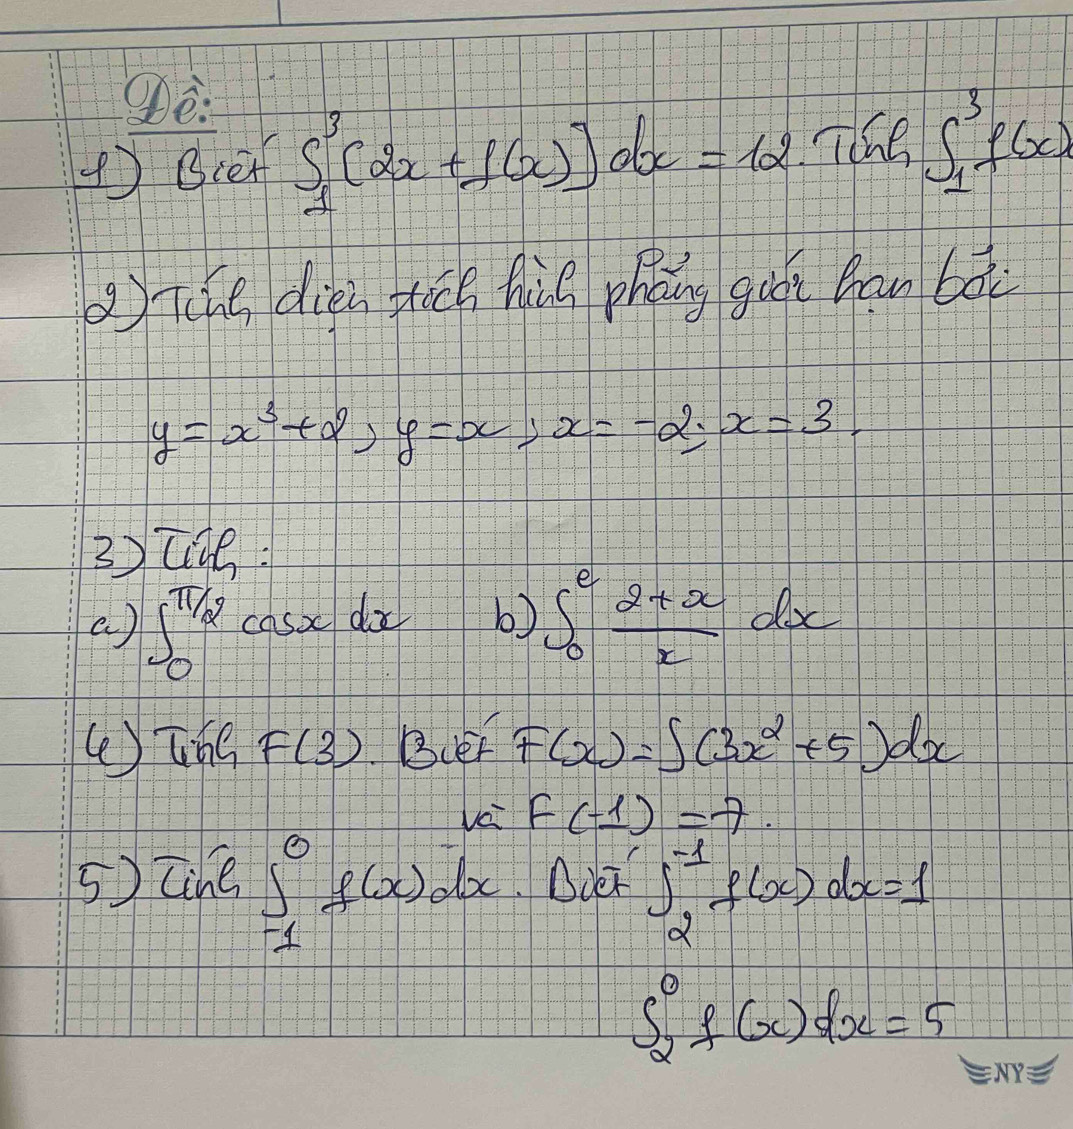 Đề:
1) Biết ∫₁³ [2x + f(x)] dx = 12. Tính ∫₁³ f(x)
2) Tính diện tích hình phẳng giới hạn bởi:
y = x³ + 2, y = x, x = -2; x = 3.
3) Tính:
a) ∫₀^(π/2) cosx dx b) ∫₀^e (2+x)/x dx
4) Tính F(3). Biết F(x) = ∫(3x² + 5)dx
và F(-1) = 7.
5) Tính ∫₋₁⁰ f(x) dx. Biết ∫₂⁻¹ f(x) dx = 1
∫₂⁰ f(x) dx = 5
NY